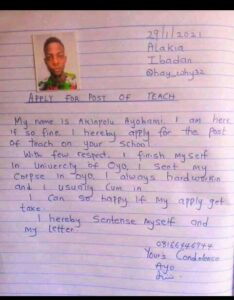 29/1/2021
Alakia
Ibadan
@hay_why32
APPLY FOR POST OF TEACH
My name is Akinpelu Ayobami. I am here
if so fine. I hereby apply for the post
of teach on your school
With few respect. I finish myself
in University of Oyo. I sent my
Corpse in oyo. I always hardworkin
and I usually Cum in
I Can so happy if my apply got
take.
I hereby Sentence myself and
my letter
08166346744
Your's Condolence
Ayo